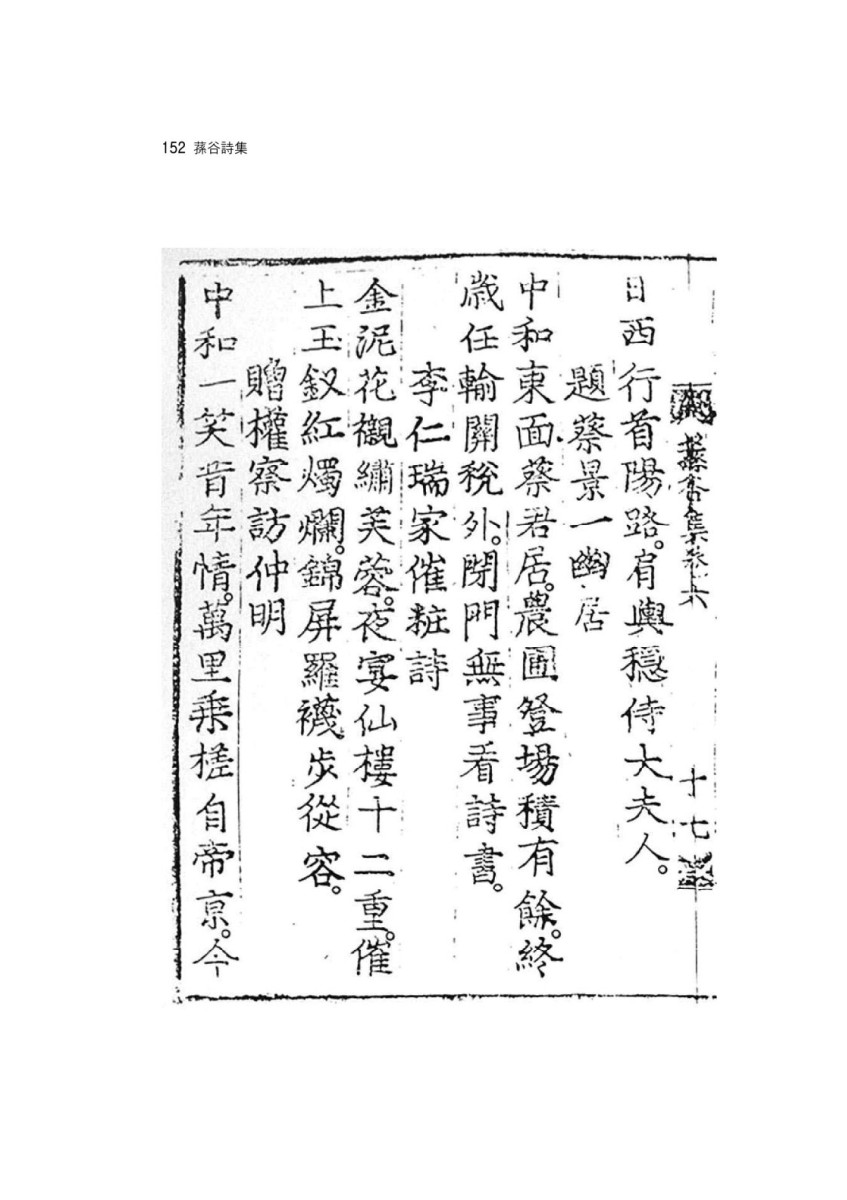 152 蓀谷詩集
蓀谷集卷六
十七
日西行首陽路。肩輿穩侍大夫人。
題蔡景一幽居
中和東面蔡君居。農圃登場積有餘。終
歲任輸關稅外。閉門無事看詩書。
李仁瑞家催粧詩
金泥花襯繡芙蓉。夜宴仙樓十二重。催
上玉釵紅燭爛。錦屛羅襪步從容。
贈權察訪仲明
中和一笑昔年情。萬里乘槎自帝京。今